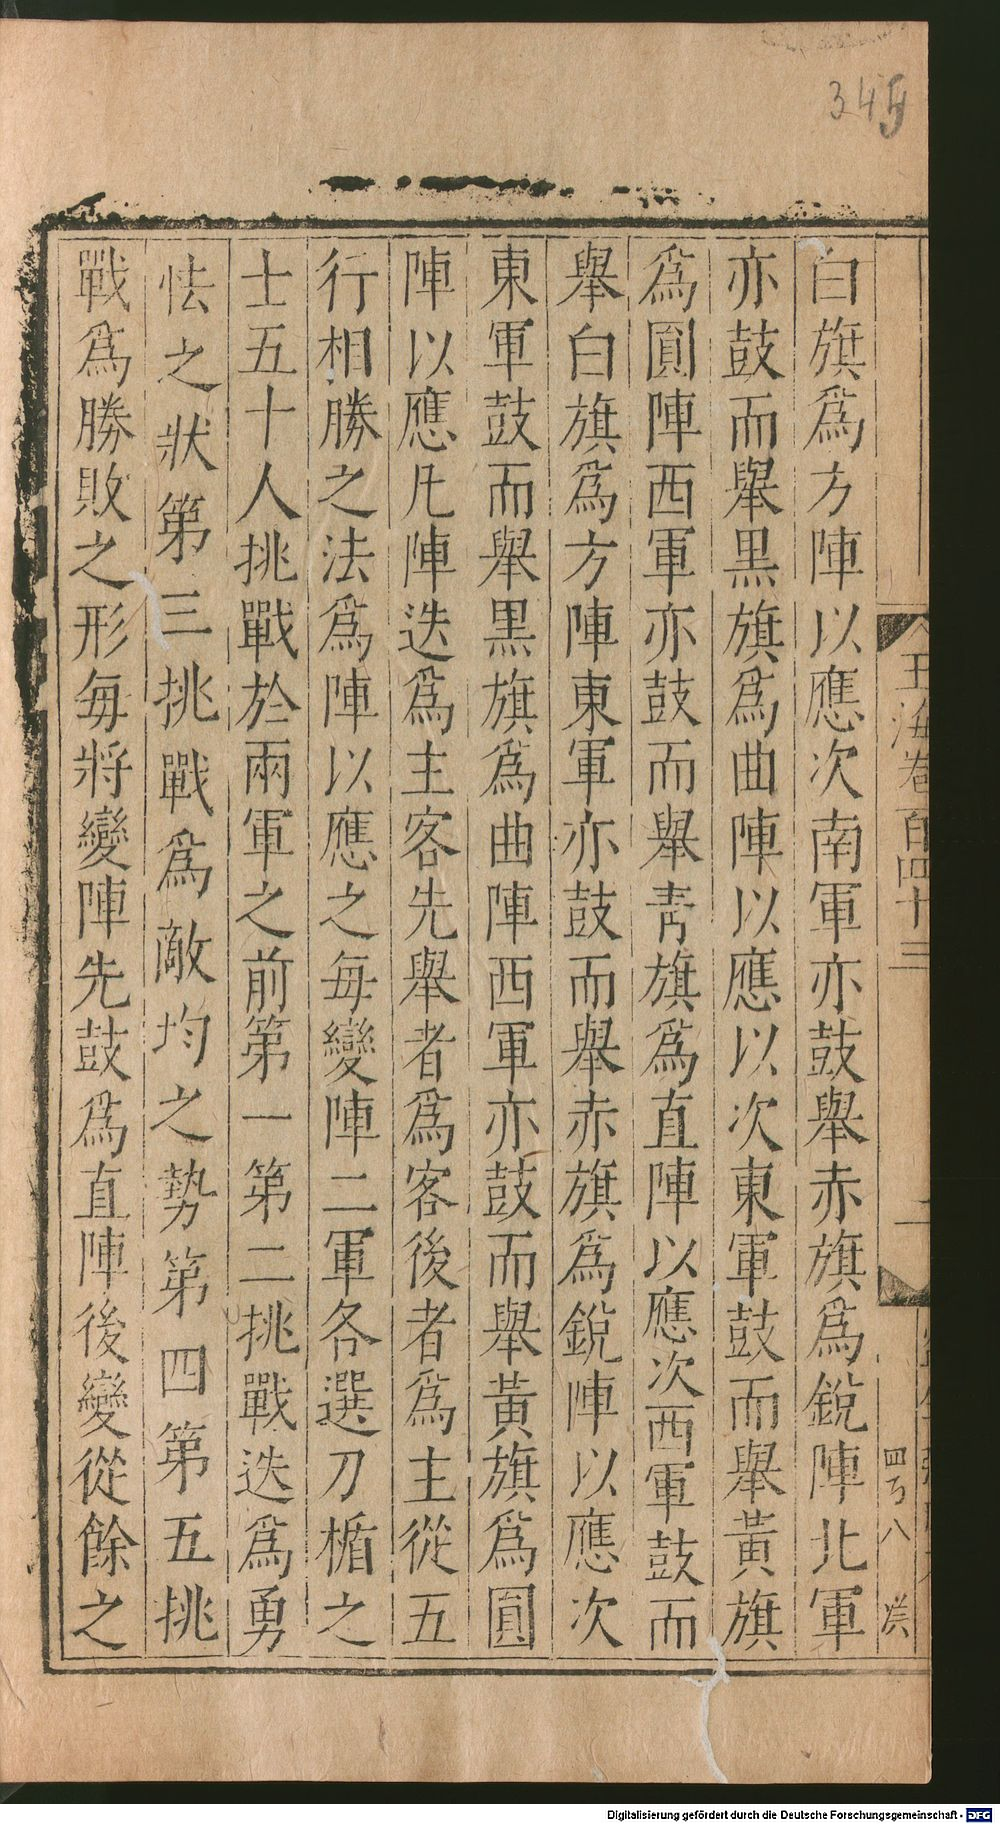 345
玉海卷百四十三
二
四丂八
白旗爲方陣以應次南軍亦鼓舉赤旗爲銳陣北軍
亦鼓而舉黑旗爲曲陣以應以次東軍鼓而舉黃旗
爲圓陣西軍亦鼓而舉靑旗爲直陣以應次西軍鼓而
舉白旗爲方陣東軍亦鼓而舉赤旗爲銳陣以應次
東軍鼓而舉黑旗爲曲陣西軍亦鼓而舉黃旗爲圓
陣以應凡陣迭爲主客先舉者爲客後者爲主從五
行相勝之法爲陣以應之每變陣二軍各選刀楯之
士五十人挑戰於兩軍之前第一第二挑戰迭爲勇
怯之狀第三挑戰爲敵均之勢第四第五挑
戰爲勝敗之形每將變陣先鼓爲直陣後變從餘之
Digitalisierung gefördert durch die Deutsche Forschungsgemeinschaft - DFG